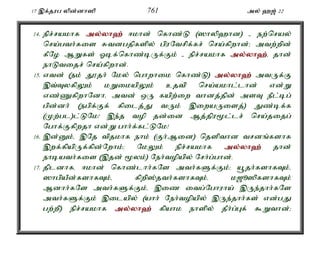 17 இக்தரப லின்னாஸி 761 அல் ஹஜ் 22
14. நிச்சயமாக அல்லாஹ் ஈமான் கொண்டு (ஸாலிஹான) நற்செயல்
செய்பவர்களை சுவனபதிகளில் பிரவேசிக்கச் செய்கிறான்; அவற்றின்
கீழே ஆறுகள் ஓடிக்கொண்டிருக்கும் - நிச்சயமாக அல்லாஹ், தான்
நாடுவதைச் செய்கிறான்.
15. எவன் (நம் தூதர் மேல் பொறாமை கொண்டு) அல்லாஹ் அவருக்கு
இவ்வுலகிலும் மறுமையிலும் உதவி செய்யமாட்டான் என்று
எண்ணுகிறானோ, அவன் ஒரு கயிற்றை வானத்தின் அளவு நீட்டிப்
பின்னர் (நபிக்குக் கிடைத்து வரும் இறையருளைத்) துண்டிக்க
(முற்பட)ட்டுமே! இந்த வழி தன்னை ஆத்திரமூட்டச் செய்ததைப்
போக்குகிறதா என்று பார்க்கட்டுமே!
16. இன்னும், இதே விதமாக நாம் (குர்ஆனை) தெளிவான வசனங்களாக
இறக்கியிருக்கின்றோம்; மேலும் நிச்சயமாக அல்லாஹ் தான்
நாடியவர்களை (இதன் மூலம்) நேர்வழியில் சேர்ப்பான்.
17. திடனாக, ஈமான் கொண்டார்களே அவர்களுக்கும்; யூதர்களாகவும்,
ஸாபியீன்களாகவும், கிறிஸ்தவர்களாகவும், மஜூஸிகளாகவும்
ஆனார்களே அவர்களுக்கும், இணை வைப்போராய் இருந்தார்களே
அவர்களுக்கும் இடையில் (யார் நேர்வழியில் இருந்தார்கள் என்பது
பற்றி) நிச்சயமாக அல்லாஹ் கியாம நாளில் தீர்ப்புக் கூறுவான்;